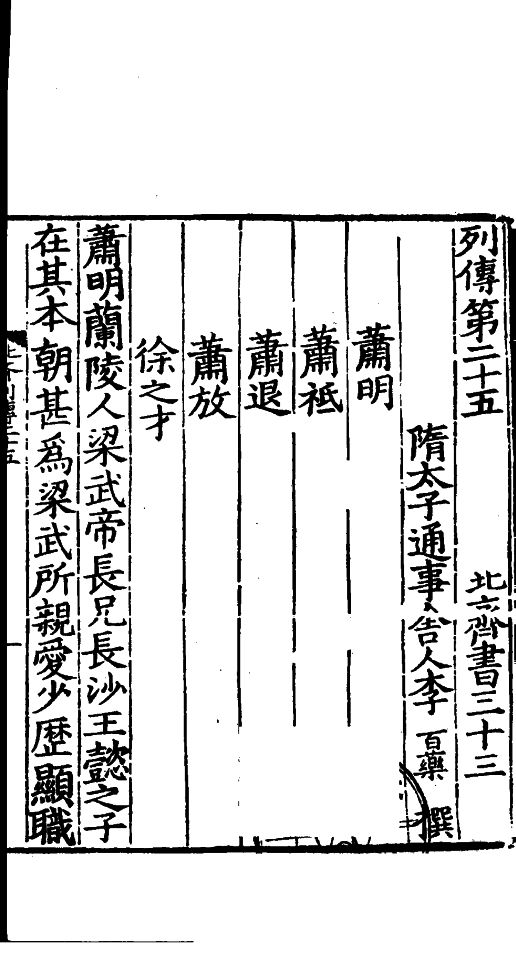 列傳第二十五　北齊書三十三
隋太子通事舍人李　百藥　撰
蕭明
蕭祗
蕭退
蕭放
徐之才
蕭明蘭陵人梁武帝長兄長沙王懿之子
在其本朝甚爲梁武所親愛少歷顯職